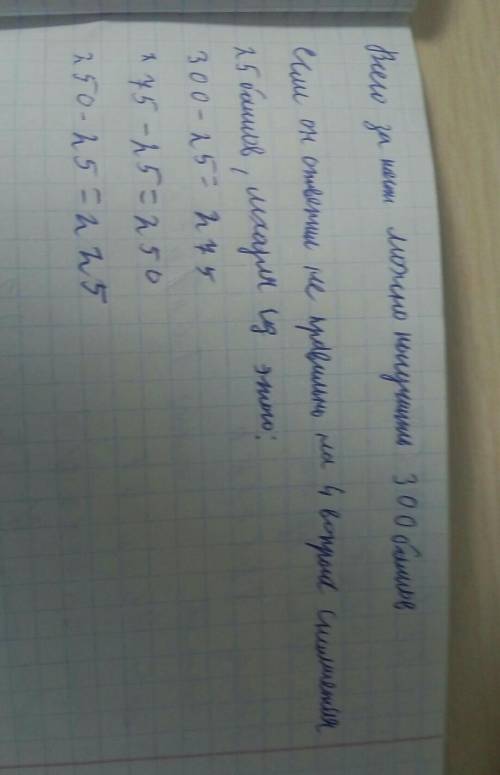 Всего за тест можно получить 300 баллов
если он ответил не правильно на 4 вопрос снимается
25 баллов, исходя из этого:
300 - 25 = 275
275 - 25 = 250
250 - 25 = 225